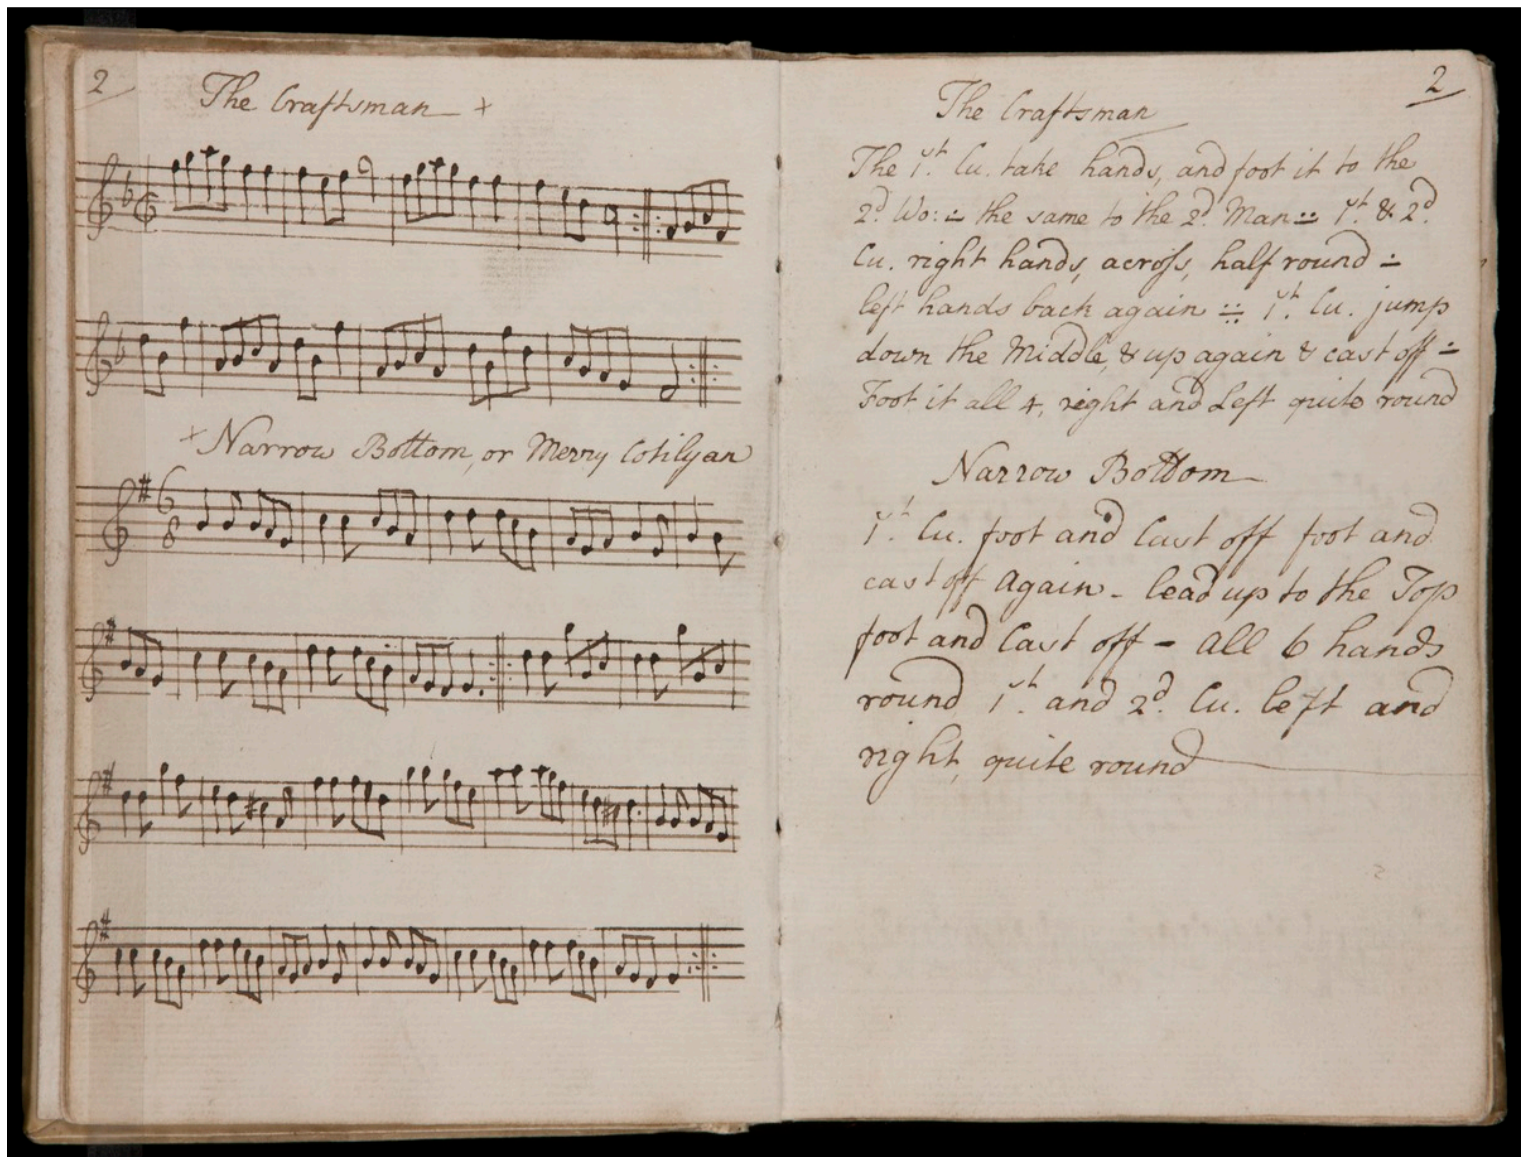 2
The Craftsman
Narrow Bottom, or Merry Cotilyan
6
8
2
The Craftsman
The 1st. Cu. take hands, and foot it to the
2d. Wo: ∸ the same to the 2d. Man ∺ 1st. & 2d.
Cu. right hands, across, half round ∸
left hands back again ∺ 1st. Cu. jump
down the Middle, & up again & cast off ∸
Foot it all 4, right and Left quite round
Narrow Bottom
1st. Cu. foot and Cast off foot and
cast off again - lead up to the Top
foot and Cast off - all 6 hands
round 1st. and 2d. Cu. left and
right, quite round